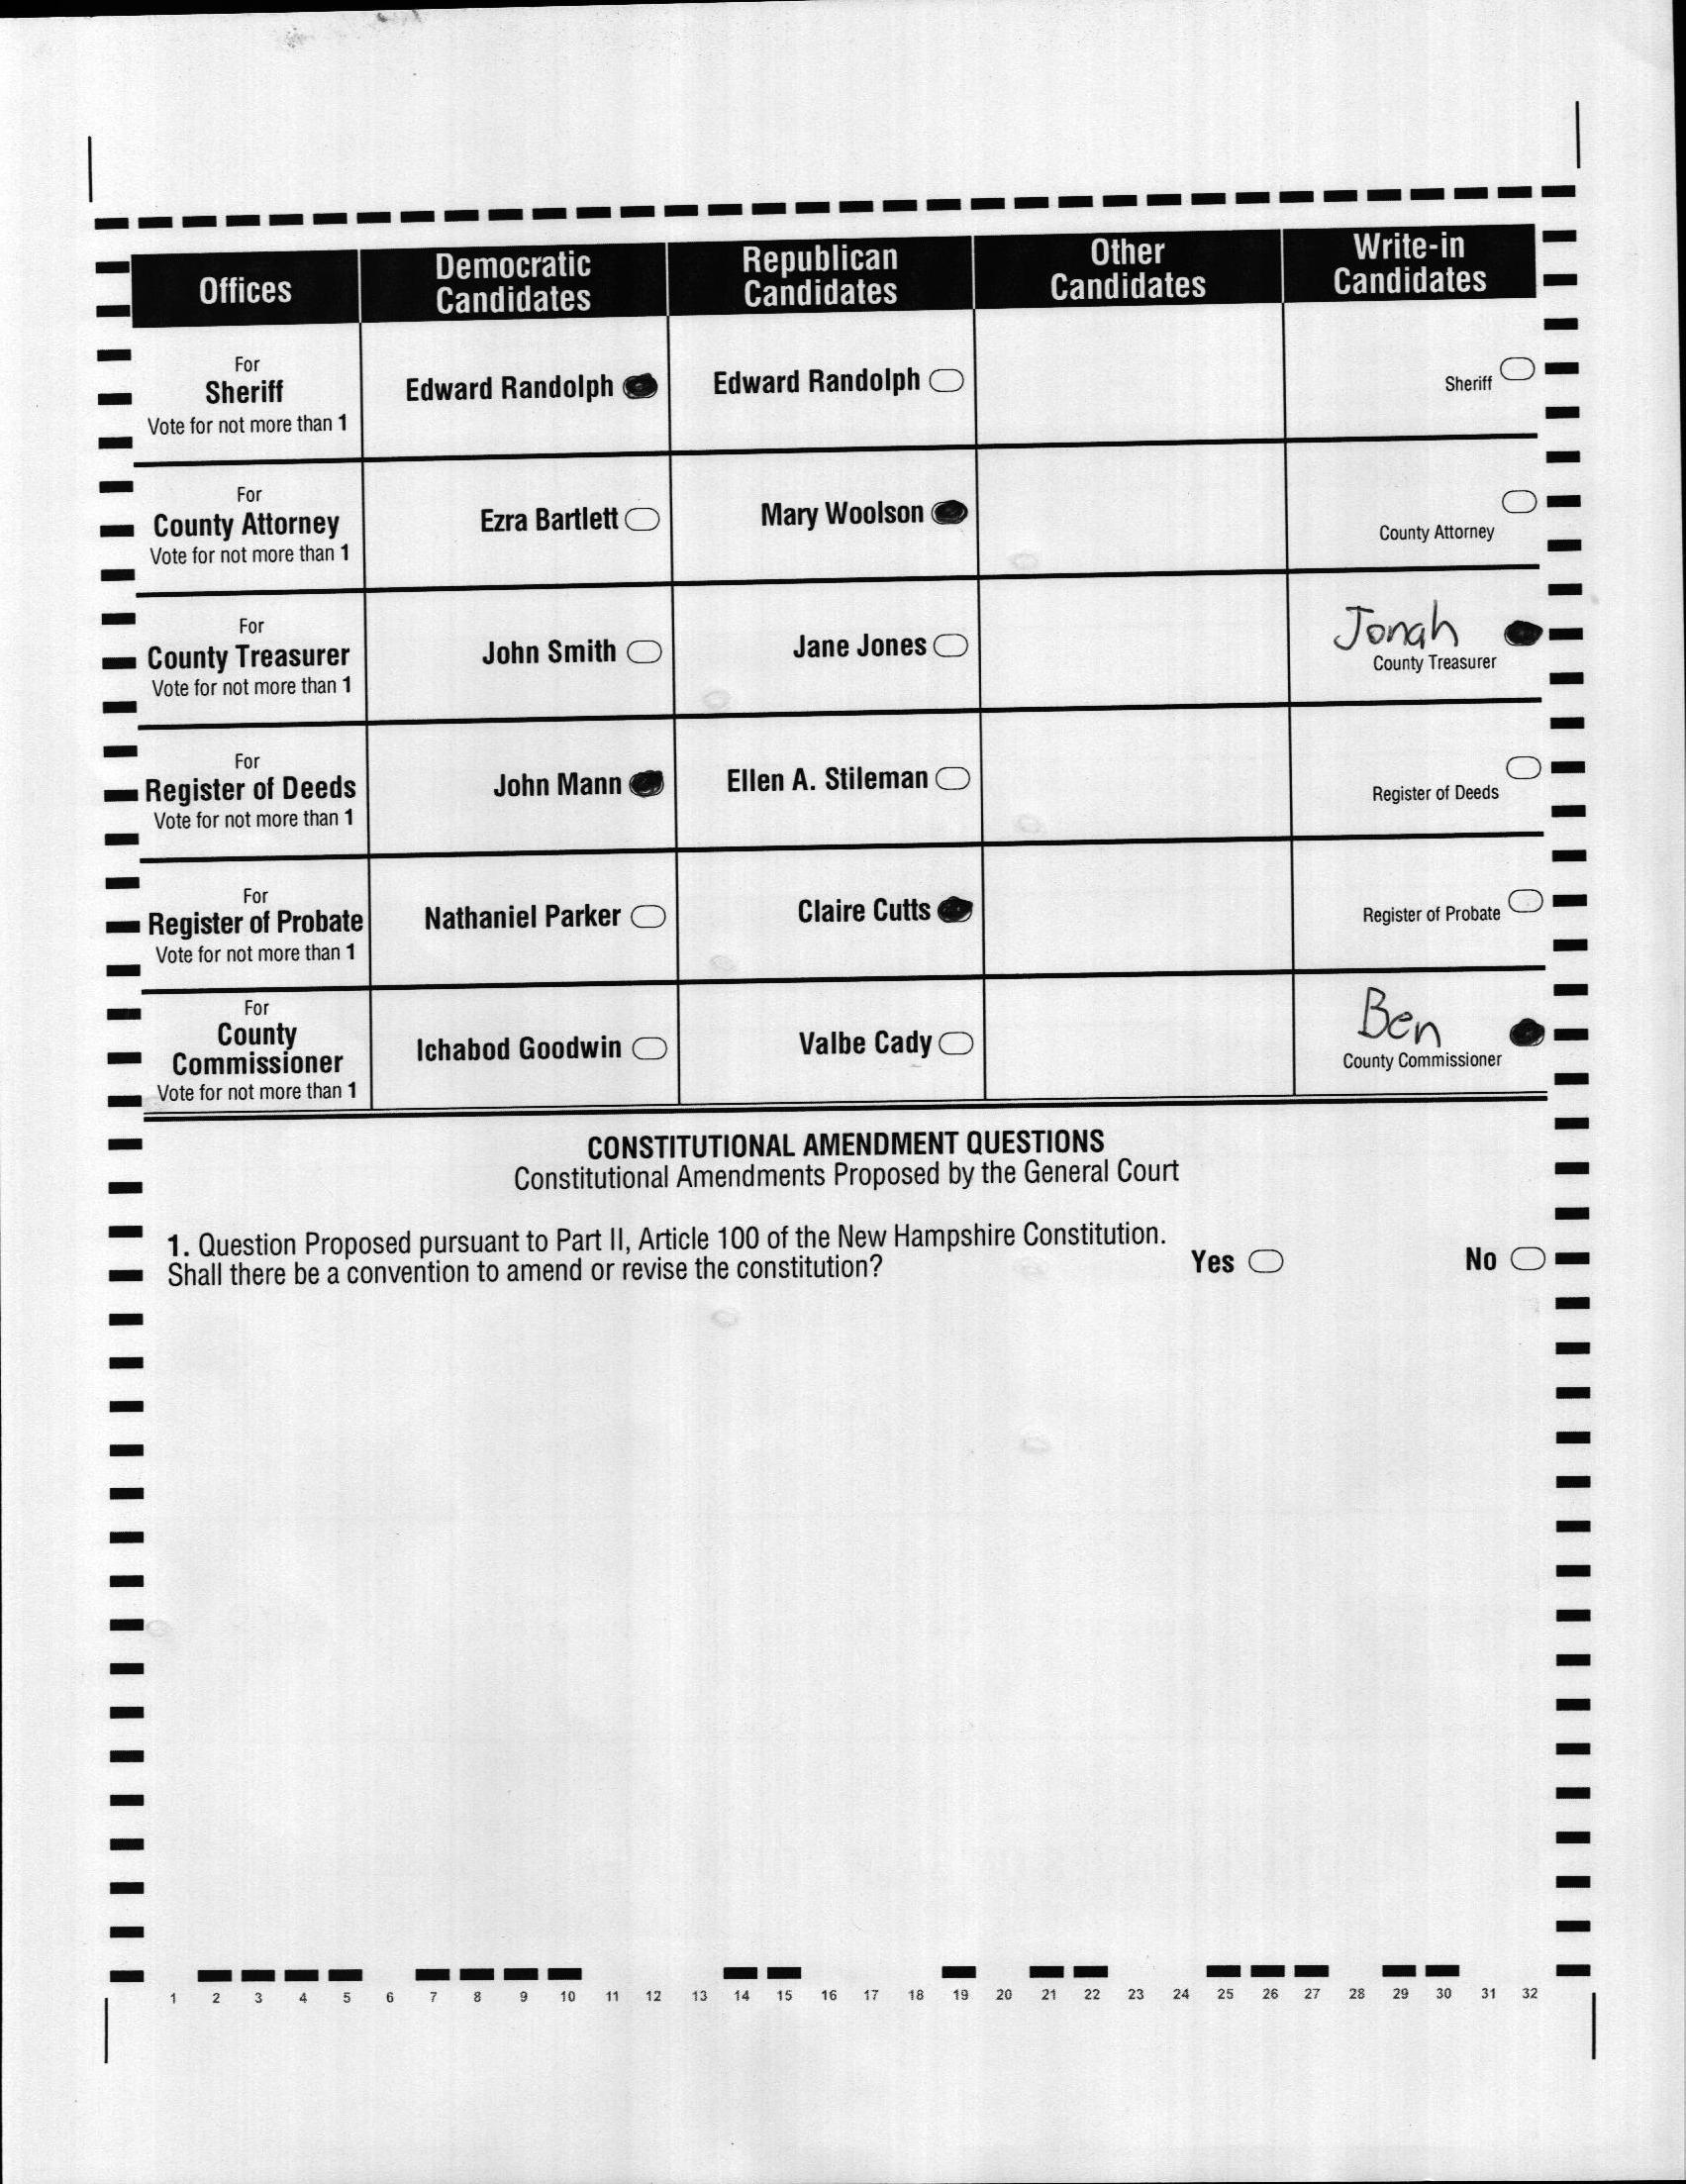 Offices
Democratic
Candidates
Republican
Candidates
Other
Candidates
Write-in
Candidates
For
Sheriff
Vote for not more than 1
Edward Randolph
Edward Randolph
Sheriff
For
County Attorney
Vote for not more than 1
Ezra Bartlett
Mary Woolson
County Attorney
For
County Treasurer
Vote for not more than 1
John Smith
Jane Jones
Jonah
County Treasurer
For
Register of Deeds
Vote for not more than 1
John Mann
Ellen A. Stileman
Register of Deeds
For
Register of Probate
Vote for not more than 1
Nathaniel Parker
Claire Cutts
Register of Probate
For
County
Commissioner
Vote for not more than 1
Ichabod Goodwin
Valbe Cady
Ben
County Commissioner
CONSTITUTIONAL AMENDMENT QUESTIONS
Constitutional Amendments Proposed by the General Court
1. Question Proposed pursuant to Part II, Article 100 of the New Hampshire Constitution.
Shall there be a convention to amend or revise the constitution?
Yes
No
1 2 3 4 5 6 7 8 9 10 11 12 13 14 15 16 17 18 19 20 21 22 23 24 25 26 27 28 29 30 31 32